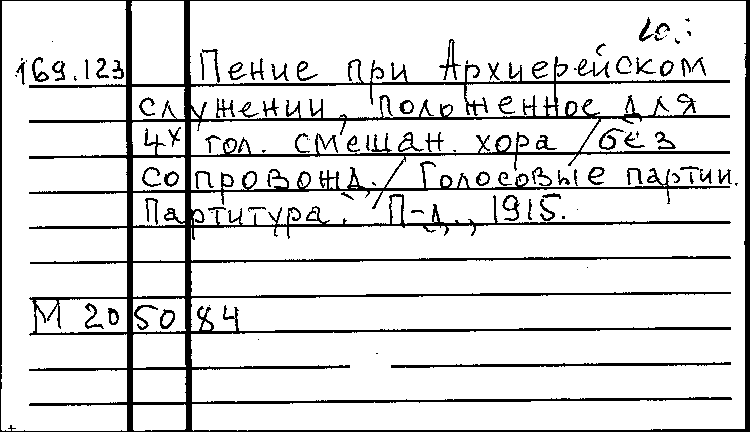 169.123 Пение при Архиерейском
служении, положенное для
4х гол. смешан. хора /без
сопровожд./ Голосовые партии.
Партитура. П-д., 1915.
М 205084